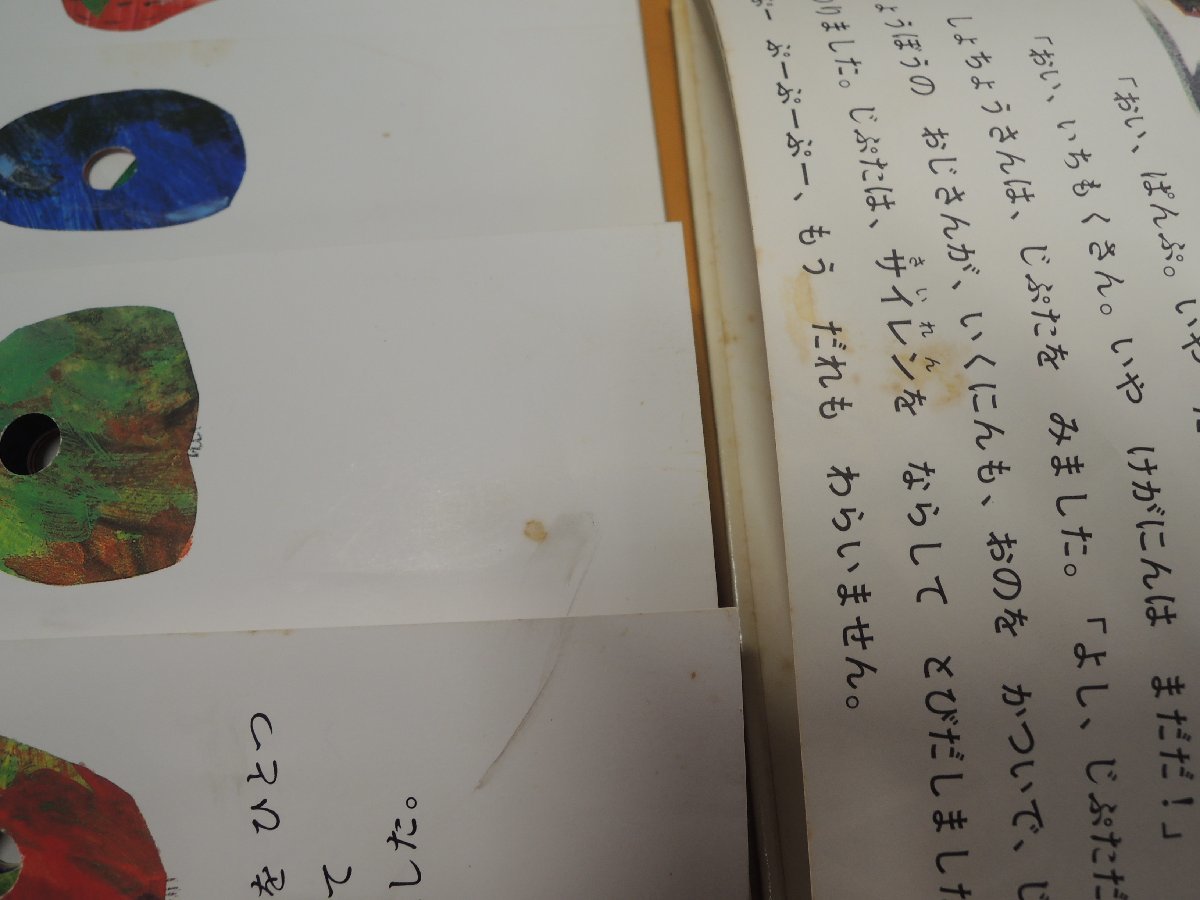 を ひとつ
て
した。
「おい、ぱんぷ。いや
「おい、いちもくさん。いや けがにんは まだだ！」
しょちょうさんは、じぷたを みました。「よし、じぷただ
ょうぼうの おじさんが、いくにんも、おのを かついで、じ
りました。じぷたは、サイレンを ならして とびだしました
さいれん
ぷーぷーぷー、もう だれも わらいません。